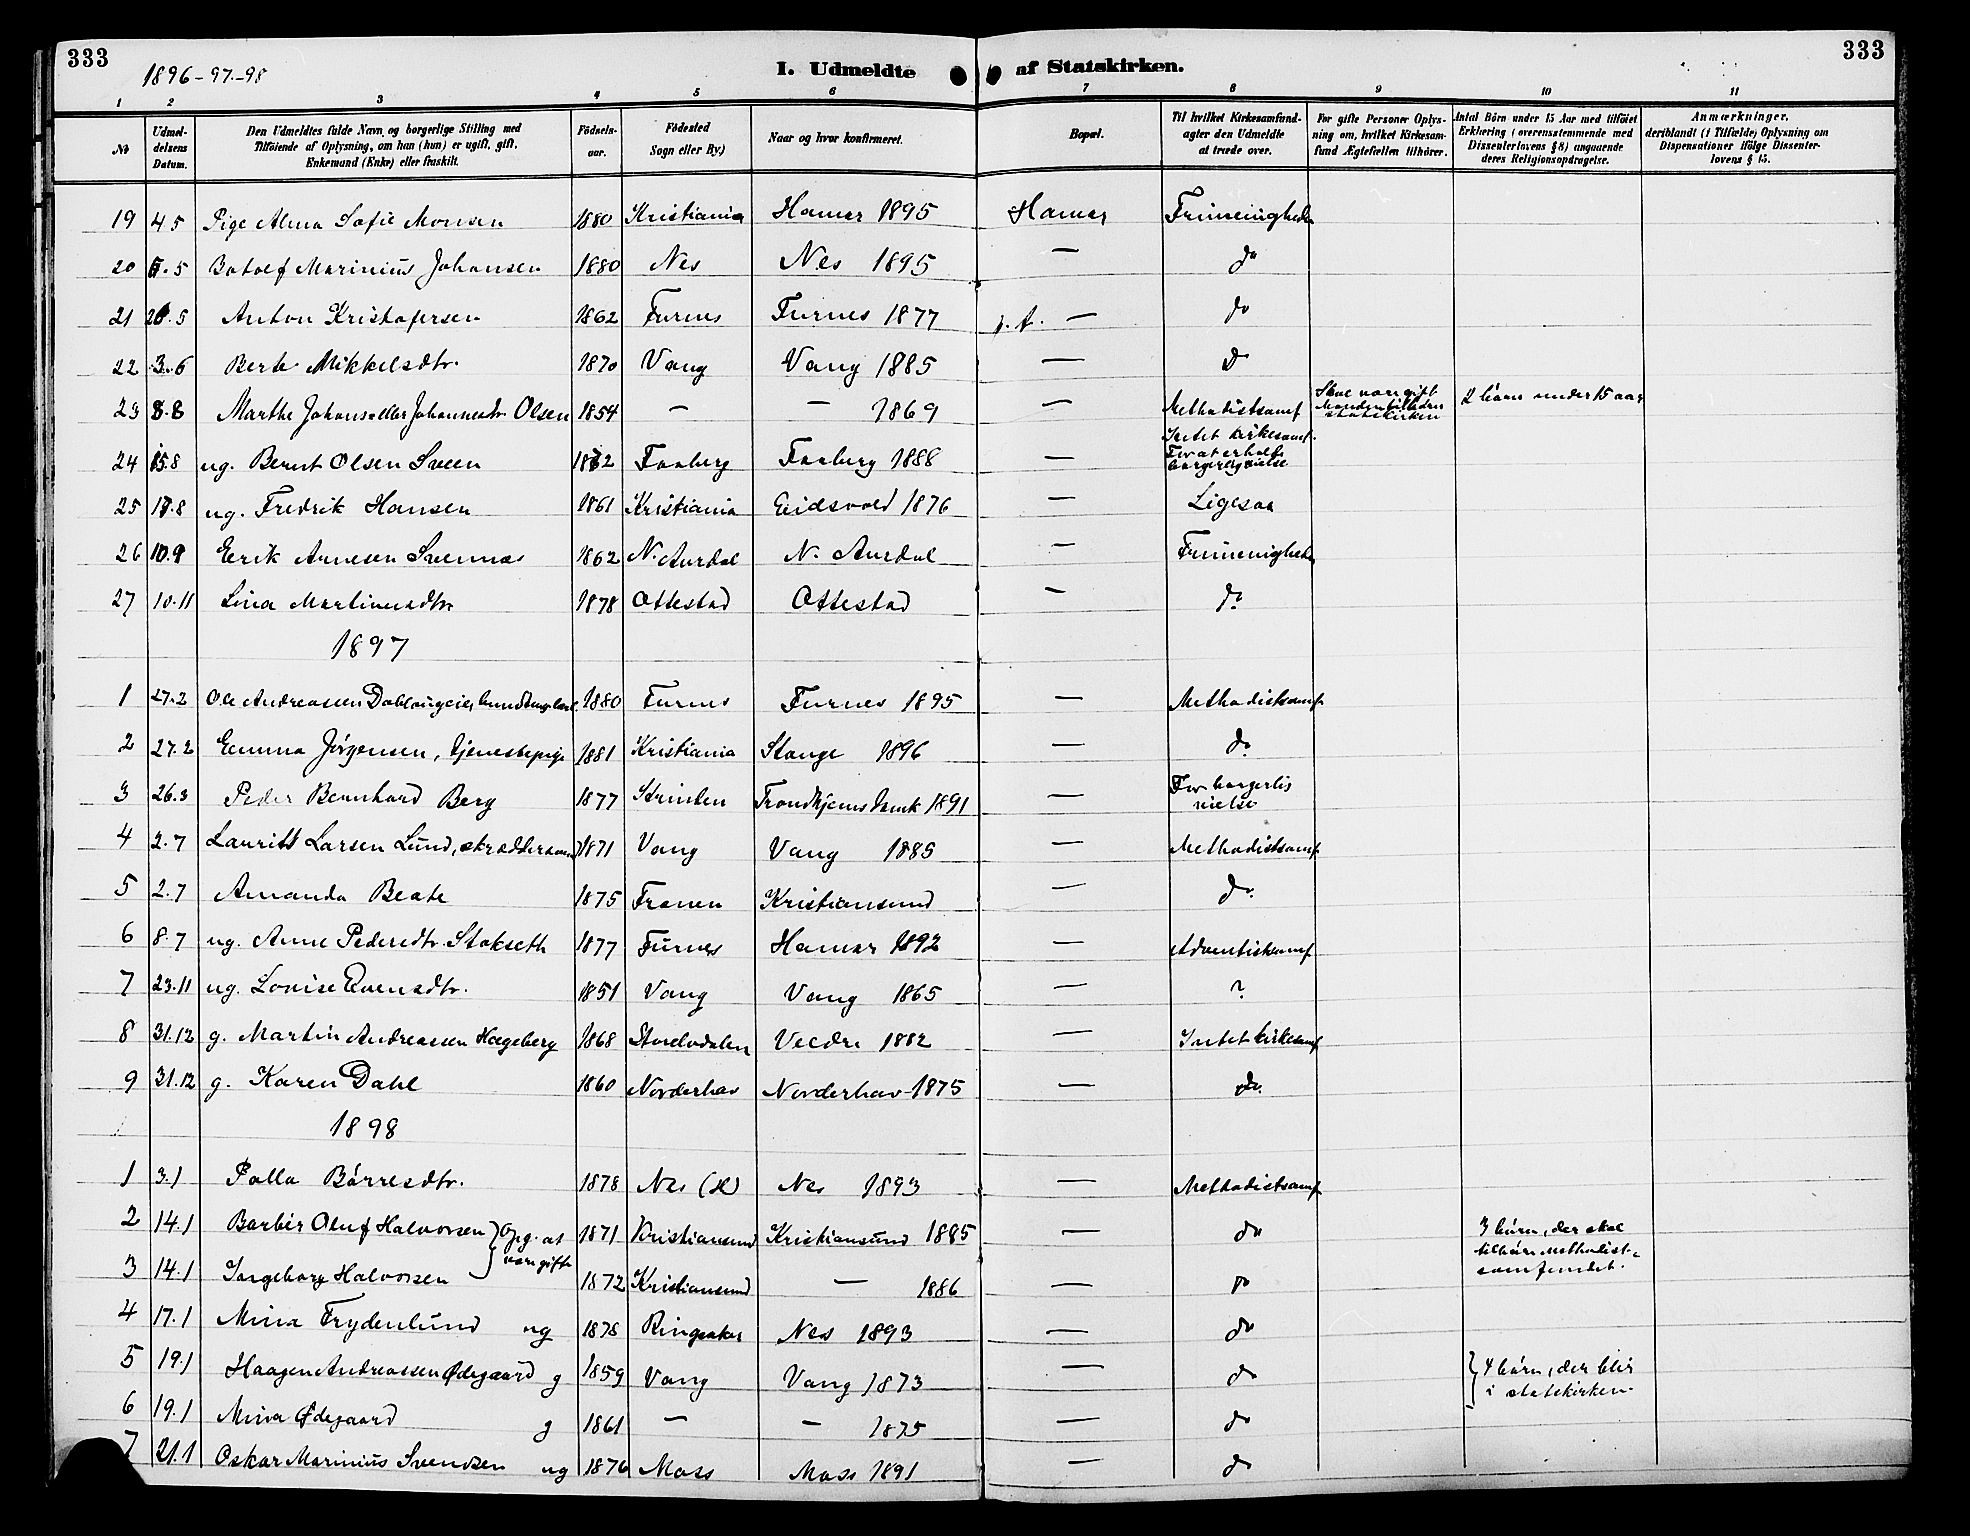 333
333
1896-97-98
I. Udmeldte af Statskirken.
1 2 3 4 5 6 7 8 9 10 11
No
Udmeldelsens Datum.
Den Udmeldtes fulde Navn og borgerlige Stilling med Tilföiende af Oplysning, om han (hun) er ugift, gift, Enkemand (Enke) eller fraskilt.
Födselsaar.
Födested Sogn eller By.)
Naar og hvor konfirmeret.
Bopæl.
Til hvilket Kirkesamfund agter den Udmeldte at træde over.
For gifte Personer Oplysning om, hvilket Kirkesamfund Ægtefællen tilhörer.
Antal Börn under 15 Aar med tilföiet Erklæring (overensstemmende med Dissenterlovens §8) angaaende deres Religionsopdragelse.
Anmærkninger, deriblandt (i Tilfælde) Oplysning om Dispensationer ifölge Dissenterlovens § 15.
19 4.5 Pige Alma Sofie Monsen 1880 Kristiania Hamar 1895 Hamar Frimenigheden
20 5.5 Botolf Marinius Johansen 1880 Nes Nes 1895 — do
21 20.5 Anton Kristofersen 1862 Furnes Furnes 1877 p.t. — do
22 3.6 Berte Mikkelsdtr. 1870 Vang Vang 1885 — do
23 8.8 Marthe Johans. eller Johannesdtr. Olsen 1854 — — 1869 — Methodistsamf Skal være gift Manden tilhører statskirken 2 børn under 15 aar
24 15.8 ug. Bernt Olsen Sveen 1872 Faaberg Faaberg 1888 — Intet kirkesamf. For at erholde borgerlig vielse
25 17.8 ug. Fredrik Hansen 1861 Kristiania Eidsvold 1876 — Ligesaa
26 10.9 Erik Arnesen Svennes 1862 N. Aurdal N. Aurdal — Frimenigheden
27 10.11 Lina Martinusdtr. 1878 Ottestad Ottestad — do.
1897
1 27.2 Ole Andreassen 1880 Furnes Furnes 1895 — Methodistsamf
2 27.2 Emma Jørgensen, tjenestepige 1881 Kristiania Stange 1896 — do.
3 26.3 Peder Bernhard Berg 1877 Strinden Trondhjems Domk 1891 — For borgerlig vielse
4 2.7 Laurits Larsen Lund, skræddersvend 1871 Vang Vang 1885 — Methodistsamf
5 2.7 Amanda Beate 1875 Frænen Kristiansund — do.
6 8.7 ug. Anne Pedersdtr. Stokseth 1877 Furnes Hamar 1892 — Adventistsamf
7 23.11 ug. Lovise Evensdtr. 1851 Vang Vang 1865 — ?
8 31.12 g. Martin Andreassen Hageberg 1868 Storelvdalen Veldre 1882 — Intet kirkesamf
9 31.12 g. Karen Dahl 1860 Norderhov Norderhov 1875 — do.
1898
1 3.1 Palla Børresdtr. 1878 Nes (H) Nes 1893 — Methodistsamf
2 14.1 Barbér Oluf Halvorsen } Opg. at være gifte 1871 Kristiansund Kristiansund 1885 — do 3 børn, der skal tilhøre Methodistsamfundet.
3 14.1 Ingeborg Halvorsen 1872 Kristiansund — 1886 — do
4 17.1 Mina Frydenlund ug 1878 Ringsaker Nes 1893 — do
5 19.1 Haagen Andreassen Ødegaard g 1859 Vang Vang 1873 — do } 4 børn, der blir i statskirken.
6 19.1 Mina Ødegaard g 1861 — — 1875 — do
7 21.1 Oskar Marinius Svendsen ug 1876 Moss Moss 1891 — do